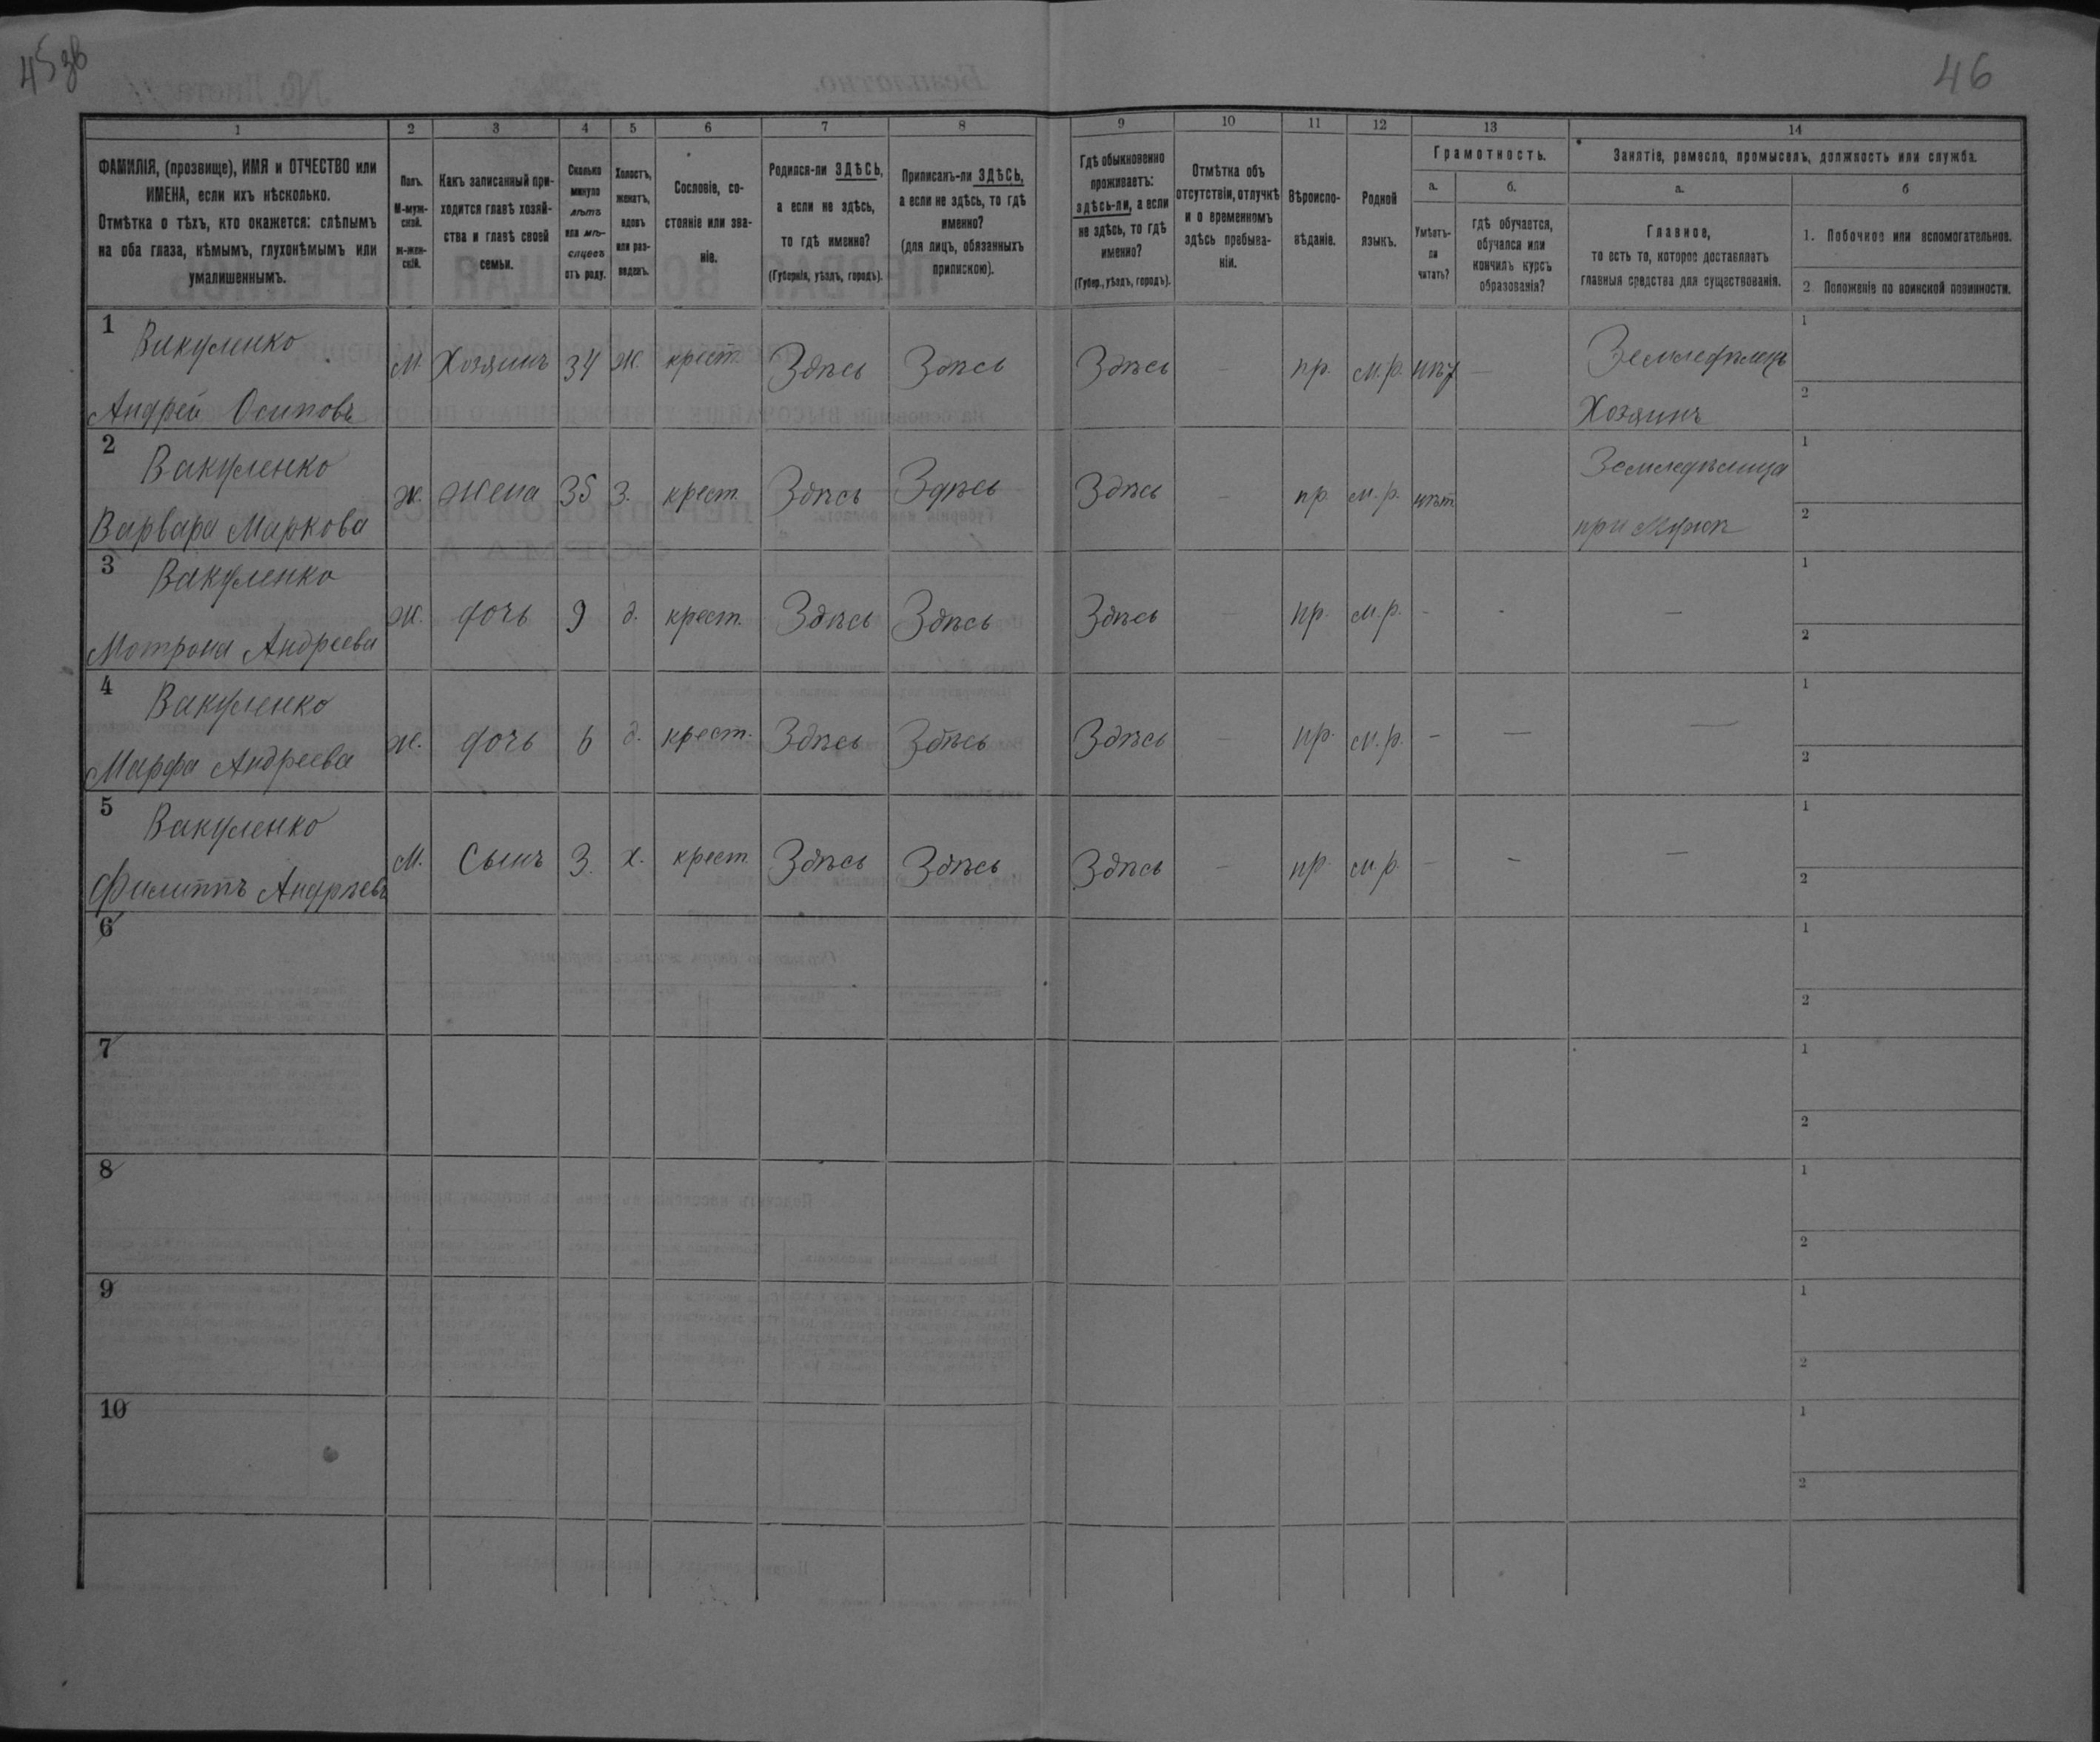 45зв
46
1 2 3 4 5 6 7 8 9 10 11 12 13 14
ФАМИЛІЯ, (прозвище), ИМЯ и ОТЧЕСТВО или
ИМЕНА, если ихъ нѣсколько.
Отмѣтка о тѣхъ, кто окажется: слѣпымъ
на оба глаза, нѣмымъ, глухонѣмымъ или
умалишеннымъ.
Полъ.
М-муж-
ской.
ж-жен-
скій.
Какъ записанный при-
ходится главѣ хозяй-
ства и главѣ своей
семьи.
Сколько
минуло
лѣтъ
или мѣ-
сяцевъ
отъ роду.
Холостъ,
женатъ,
вдовъ
или раз-
веденъ.
Сословіе, со-
стояніе или зва-
ніе.
Родился-ли ЗДѢСЬ,
а если не здѣсь,
то гдѣ именно?
(Губернія, уѣздъ, городъ).
Приписанъ-ли ЗДѢСЬ,
а если не здѣсь, то гдѣ
именно?
(для лицъ, обязанныхъ
припискою).
Гдѣ обыкновенно
проживаетъ:
здѣсь-ли, а если
не здѣсь, то гдѣ
именно?
(Губер., уѣздъ, городъ).
Отмѣтка объ
отсутствіи, отлучкѣ
и о временномъ
здѣсь пребыва-
ніи.
Вѣроиспо-
вѣданіе.
Родной
языкъ.
Грамотность.
а.
Умѣетъ-
ли
читать?
б.
гдѣ обучается,
обучался или
кончилъ курсъ
образованія?
Занятіе, ремесло, промыселъ, должность или служба.
а.
Главное,
то есть то, которое доставляетъ
главныя средства для существованія.
б
1. Побочное или вспомогательное.
2 Положеніе по воинской повинности.
1 Вакуленко
Андрей Осиповъ
М. Хозяинъ 34 Ж. крест. Здѣсь Здѣсь Здѣсь - пр. м.р. нѣт -
Земледѣлецъ
Хозяинъ
1
2
2 Вакуленко
Варвара Маркова
Ж. жена 35 З. крест. Здѣсь Здѣсь Здѣсь - пр. м.р. нѣт
Земледѣлица
при мужѣ
1
2
3 Вакуленко
Мотрона Андреева
Ж. дочь 9 д. крест. Здѣсь Здѣсь Здѣсь - пр. м.р. - - -
1
2
4 Вакуленко
Марфа Андреева
Ж. дочь 6 д. крест. Здѣсь Здѣсь Здѣсь - пр. м.р. - - -
1
2
5 Вакуленко
Филиппъ Андрѣевъ
М. Сынъ 3. х. крест. Здѣсь Здѣсь Здѣсь - пр. м.р. - - -
1
2
6
1
2
7
1
2
8
1
2
9
1
2
10
1
2